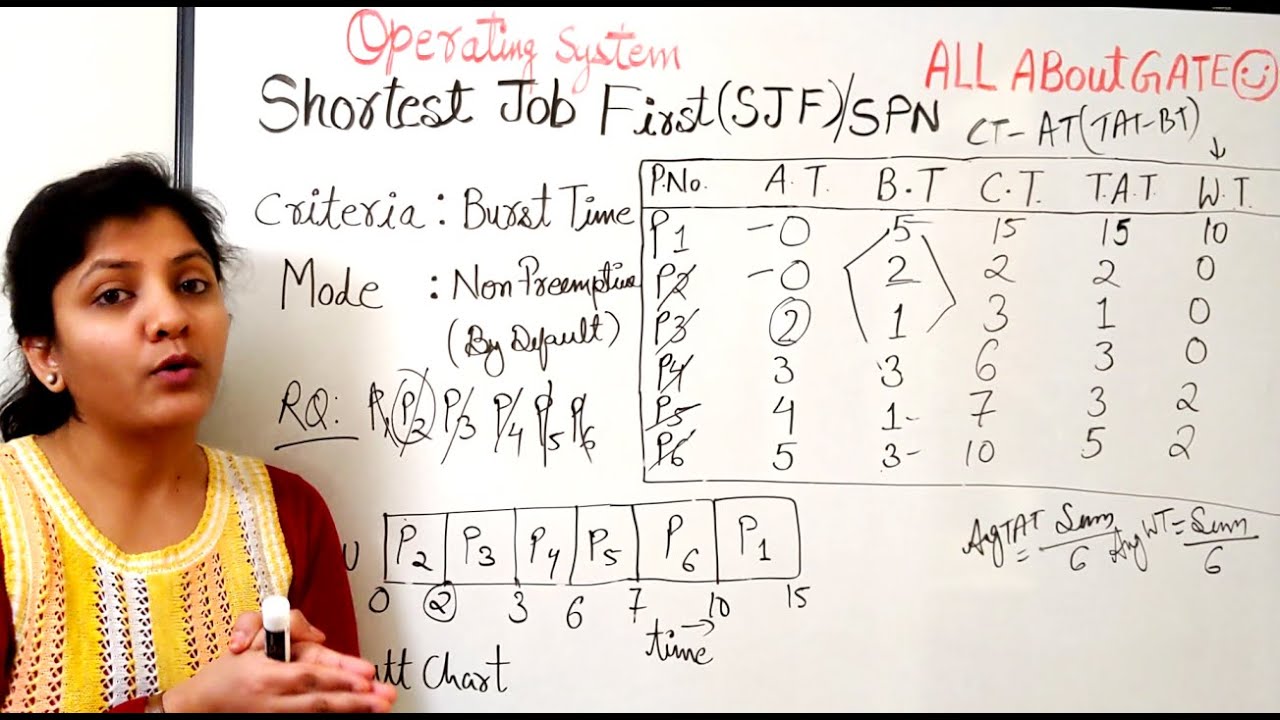 Operating System
ALL ABout GATE
Shortest Job First (SJF)/SPN
CT-AT (TAT-BT)
Criteria : Burst Time
Mode : Non Preemptive
(By Default)
P.No. A.T. B.T C.T. T.A.T. W.T.
P1 -0 5 15 15 10
P2 -0 2 2 2 0
P3 2 1 3 1 0
P4 3 3 6 3 0
P5 4 1- 7 3 2
P6 5 3- 10 5 2
RQ: P1 P2 P3 P4 P5 P6
P2 P3 P4 P5 P6 P1
0 2 3 6 7 10 15
time
Chart
AvgTAT = Sum/6 AvgWT = Sum/6